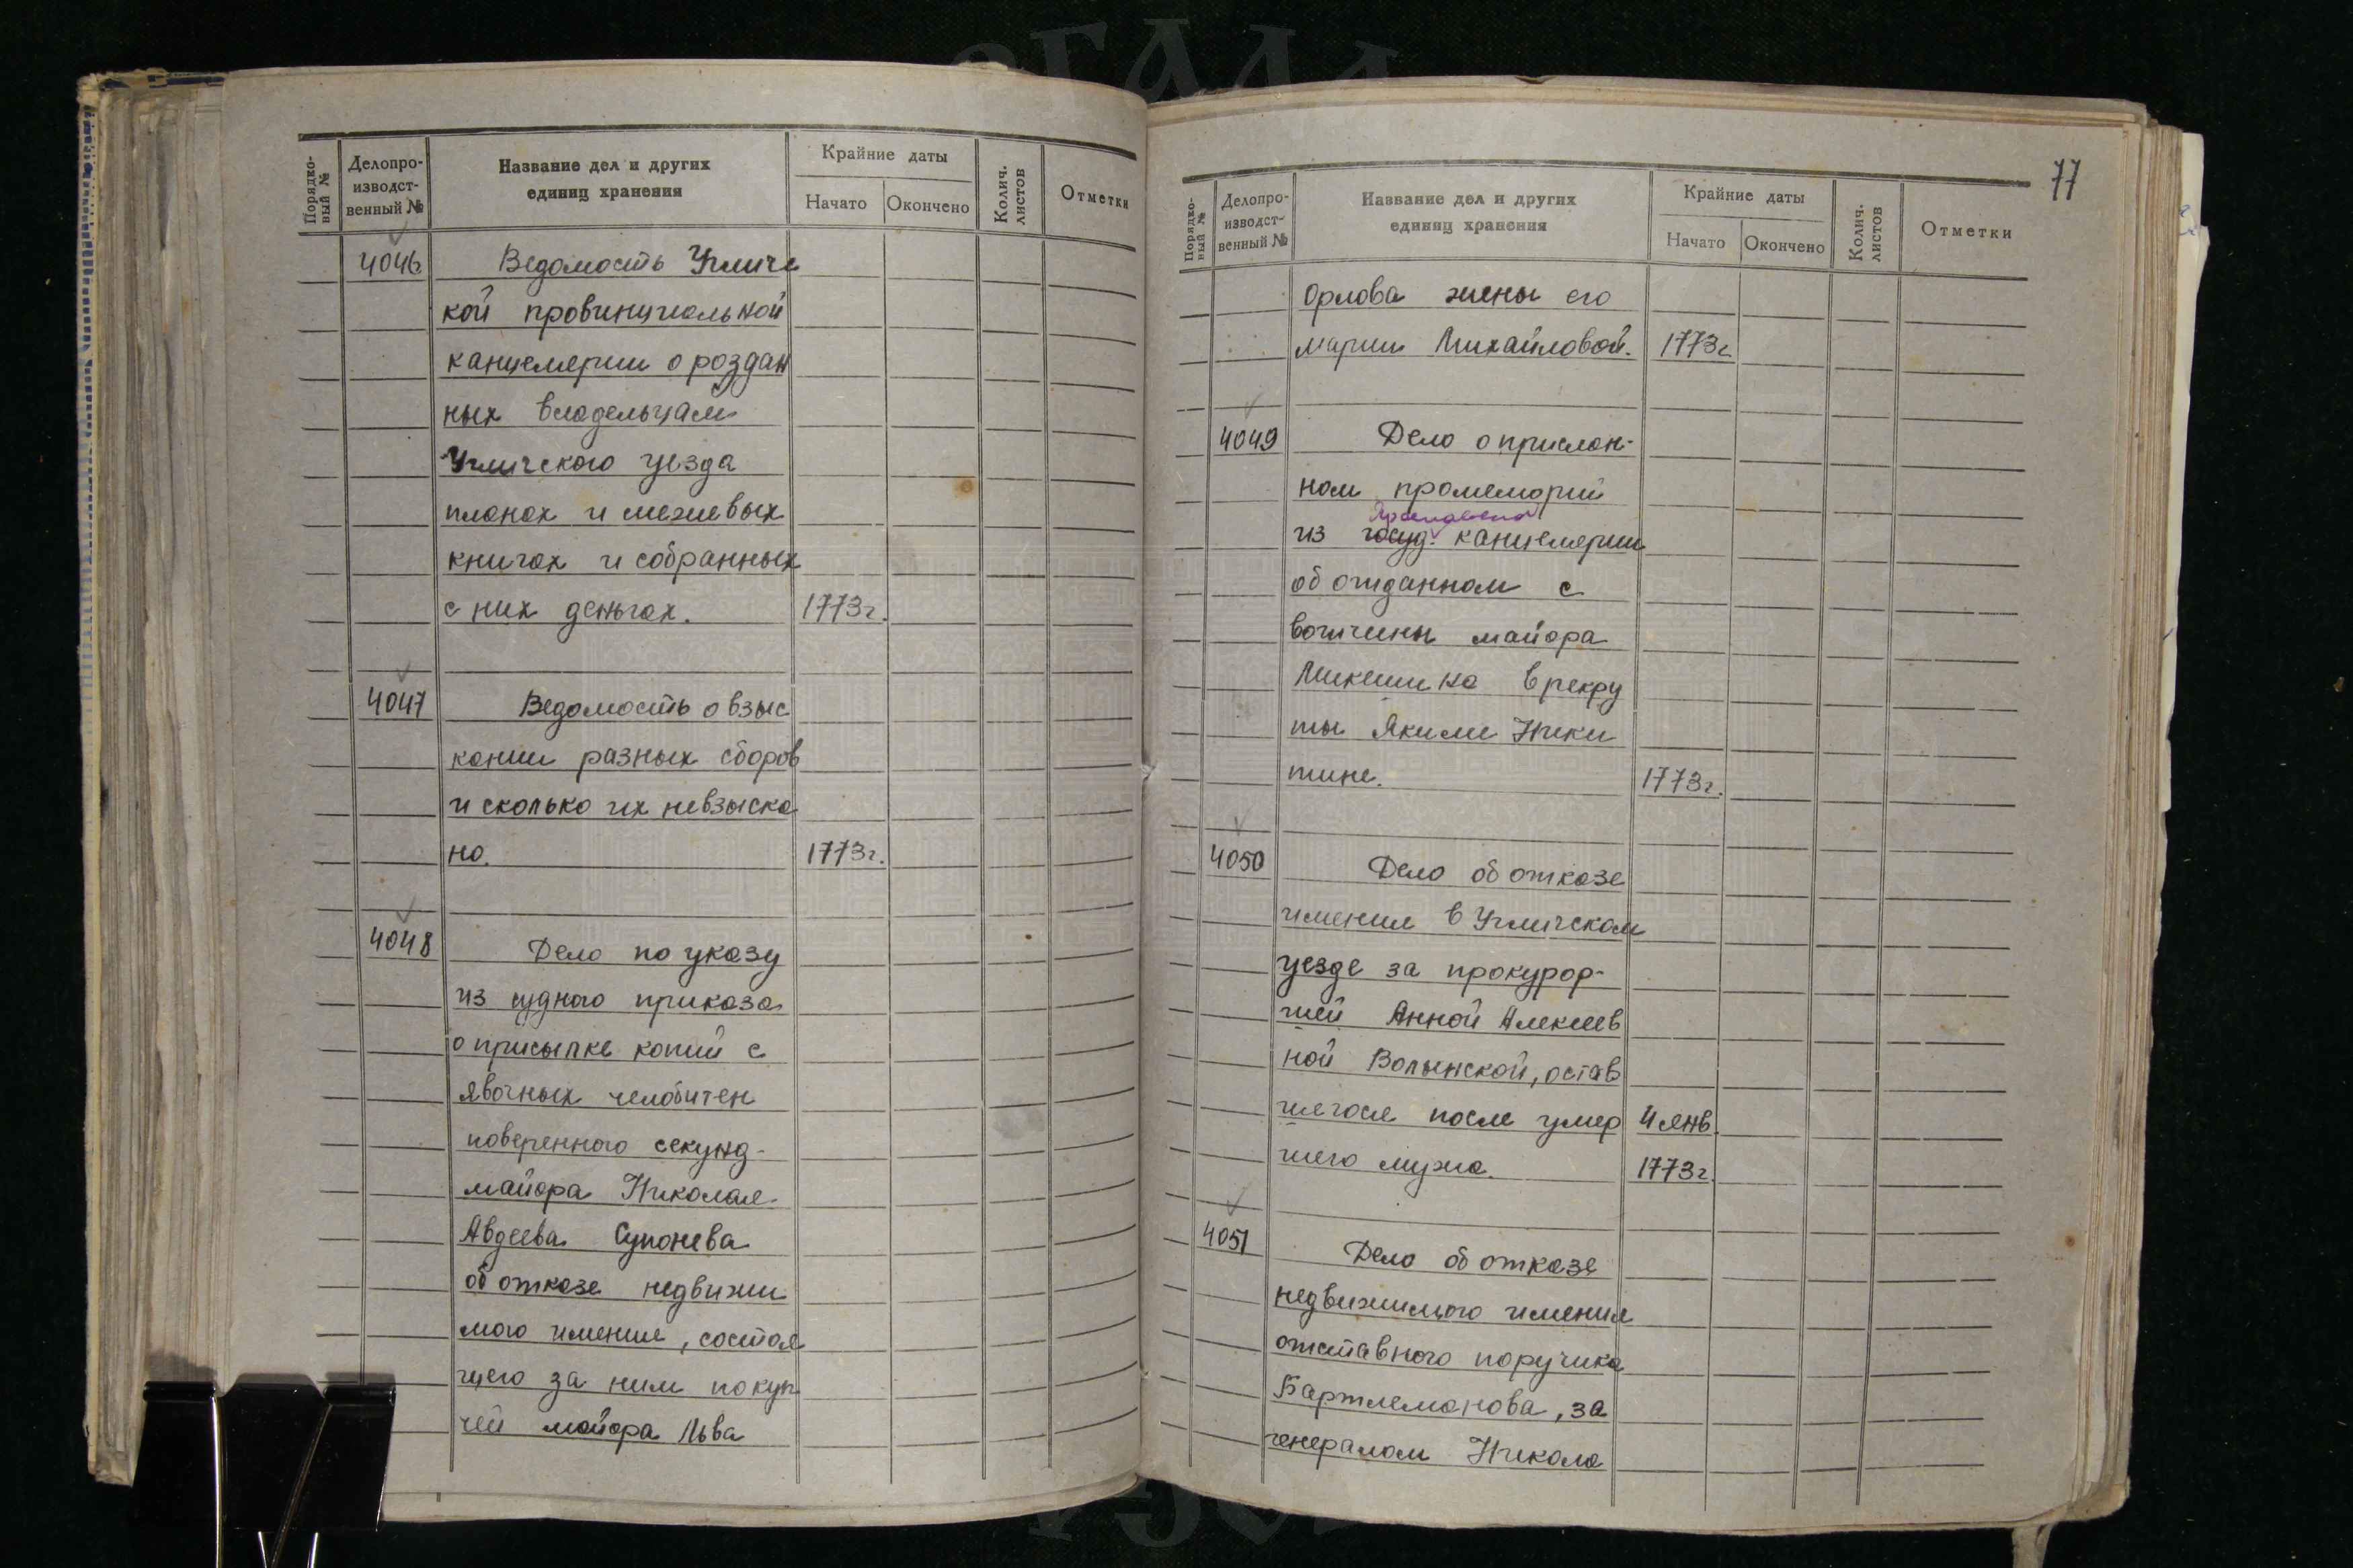 Порядко-
вый №
Делопро-
изводст-
венный №
Название дел и других
единиц хранения
Крайние даты
Начато
Окончено
Колич.
листов
Отметки
4046 Ведомость Угличс
кой провинциальной
канцелярии о роздан
ных владельцам
Угличского уезда
планах и межевых
книгах и собранных
с них деньгах. 1773г.
4047 Ведомость о взыс
кании разных сборов
и сколько их невзыска
но. 1773г.
4048 Дело по указу
из судного приказа
о присылке копий с
явочных челобитен
поверенного секунд-
майора Николая
Авдеева Супонева
об отказе недвижи
мого имения, состоя
щего за ним по куп
чей майора Льва
77
Порядко-
вый №
Делопро-
изводст-
венный №
Название дел и других
единиц хранения
Крайние даты
Начато
Окончено
Колич.
листов
Отметки
Орлова жены его
Марии Михайловой. 1773г
4049 Дело о прислан-
ном промемории
Ярославской
из госуд. канцелярии
об отданном с
вотчины майора
Микешина в рекру
ты Якиме Ники
тине. 1773г.
4050 Дело об отказе
имения в Угличском
уезде за прокурор-
шей Анной Алексеев
ной Волынской, остав
шегося после умер 4 янв.
шего мужа. 1773г.
4051 Дело об отказе
недвижимого имения
отставного поручика
Бартлеманова, за
генералом Никола